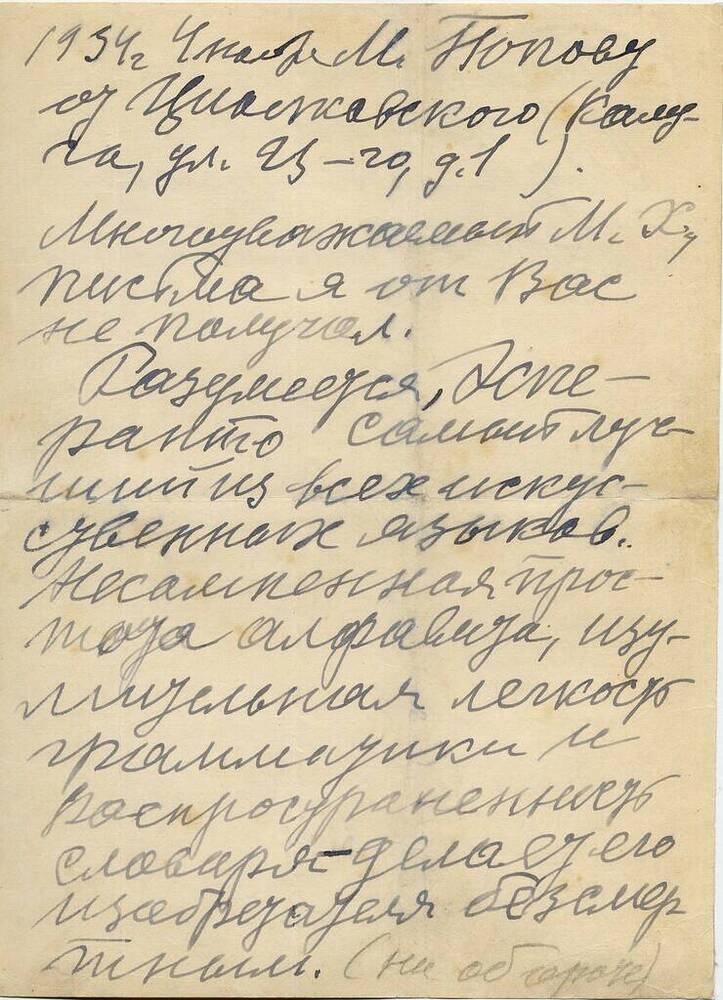 1934г 4 ноября М. Попову
от Циолковского (Калу-
га, ул. Ц-го, д.1).
Многоуважаемый М. Х.,
письма я от Вас
не получал.
Разумеется, Эспе-
ранто самый луч-
ший из всех искус-
ственных языков.
Несомненная прос-
тота алфавита, изу-
мительная легкость
грамматики и
распространенность
словаря – делает его
изобретателя безсмер
тным. (на обороте)